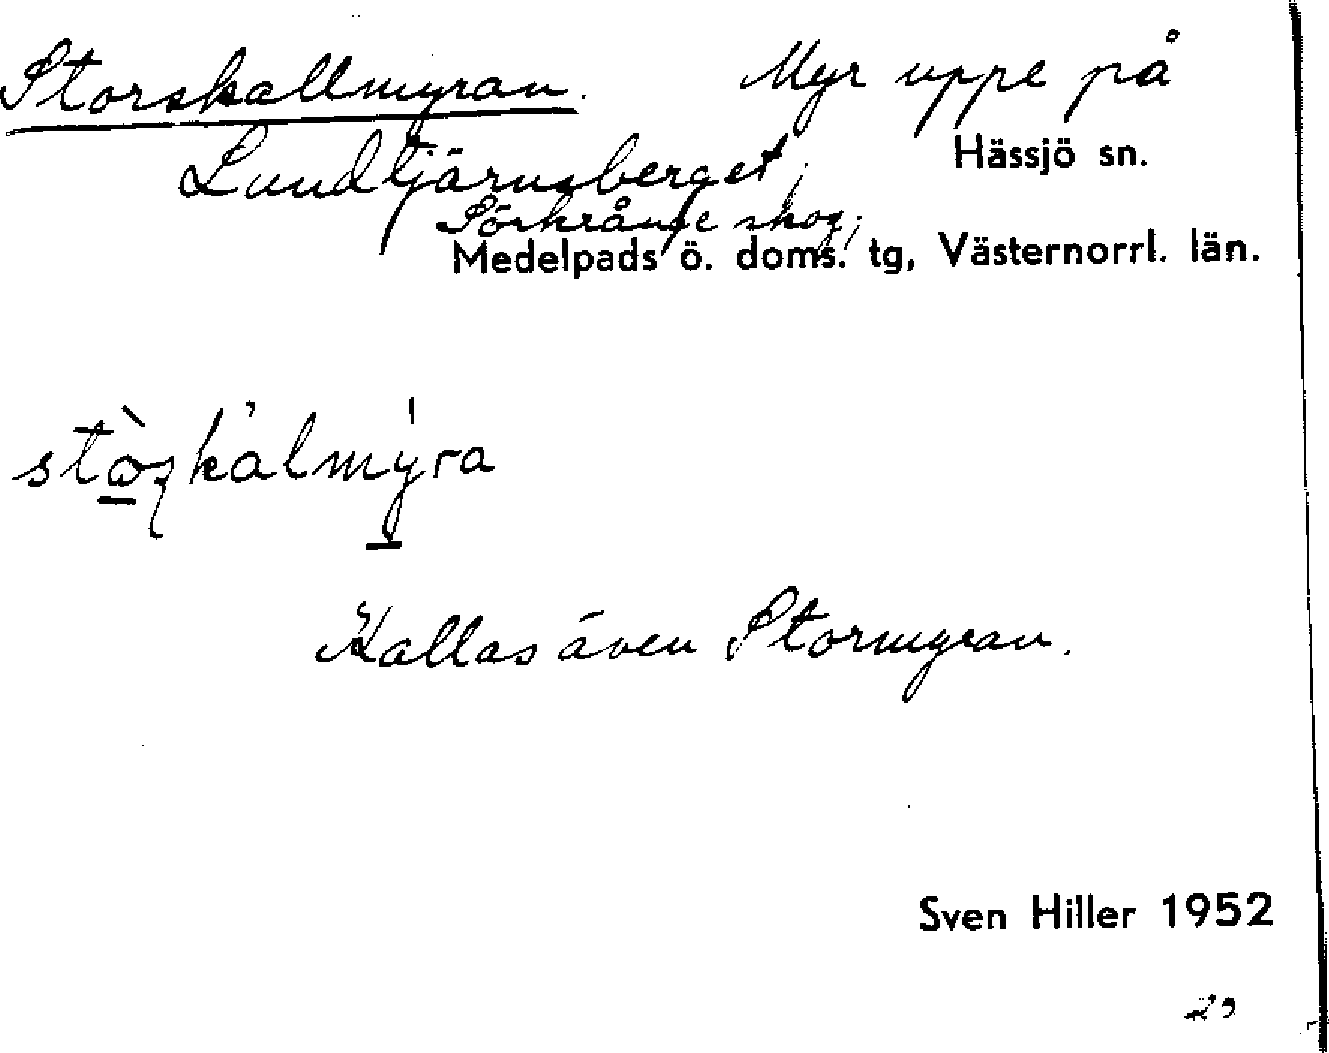 Storskallmyran. Myr uppe på
Hässjö sn.
Lundtjärnsberget,
Sörkrånge skog;
Medelpads ö. doms. tg, Västernorrl. län.
Kallas även Stormyran.
Sven Hiller 1952